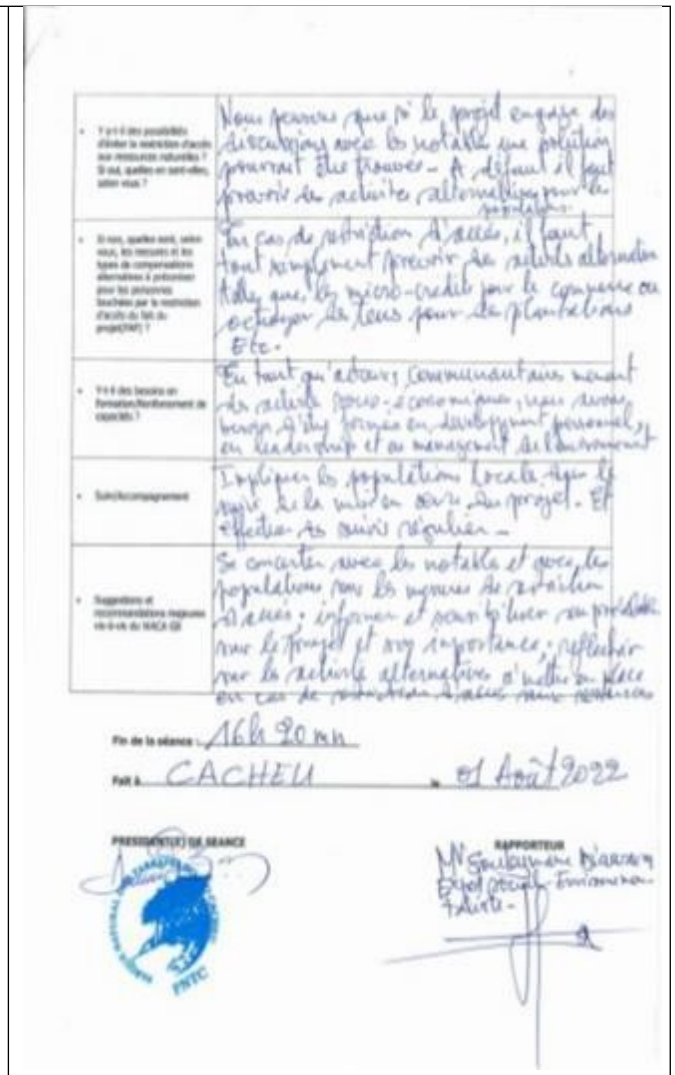 • Y a-t-il des possibilités
d'éviter la restriction d'accès
aux ressources naturelles ?
Si oui, quelles en sont-elles,
selon vous ?
Nous pensons que si le projet engage des
discussions avec les notable une solution
pourrait être trouver - A défaut il faut
prevoir des activites alternatives pour les
populations.
• Si non, quelles sont, selon
vous, les mesures et les
types de compensations
alternatives à préconiser
pour les personnes
touchées par la restriction
d'accès du fait du
projet(PAP) ?
En cas de restriction d'accès, il faut
tout simplement prevoir des activités alternatives
telles que, les micro-credits pour le commerce ou
octroyer des pour des plantations
Etc.
• Y-t-il des besoins en
formation/Renforcement de
capacités ?
En tant qu'acteurs communautaires menant
des activités socio-économiques, nous avons
besoin d'être formés en développement personnel,
en leadership et en management de l'environnement
• Suivi/Accompagnement
Impliquer les populations locale dans le
suivi de la mise en œuvre du projet. Et
effectuer des suivis régulier -
• Suggestions et
recommandations majeures
vis-à-vis du WACA GB
Se concerter avec les notable et avec les
populations sur les mesures de restriction
d'accès ; informer et sensibiliser au préalable
sur le projet et son importance ; réflechir
sur les activités alternatives à mettre en place
en cas de restriction d'accès aux ressources
Fin de la séance : 16h 20 mn
Fait à CACHEU le 01 Août 2022
PRESIDENT(E) DE SEANCE
RAPPORTEUR
Mr Souleymane
Expert Social - Environnemen-
taliste -
PARQUE NATURAL TARRAFES CACHEU
PNTC